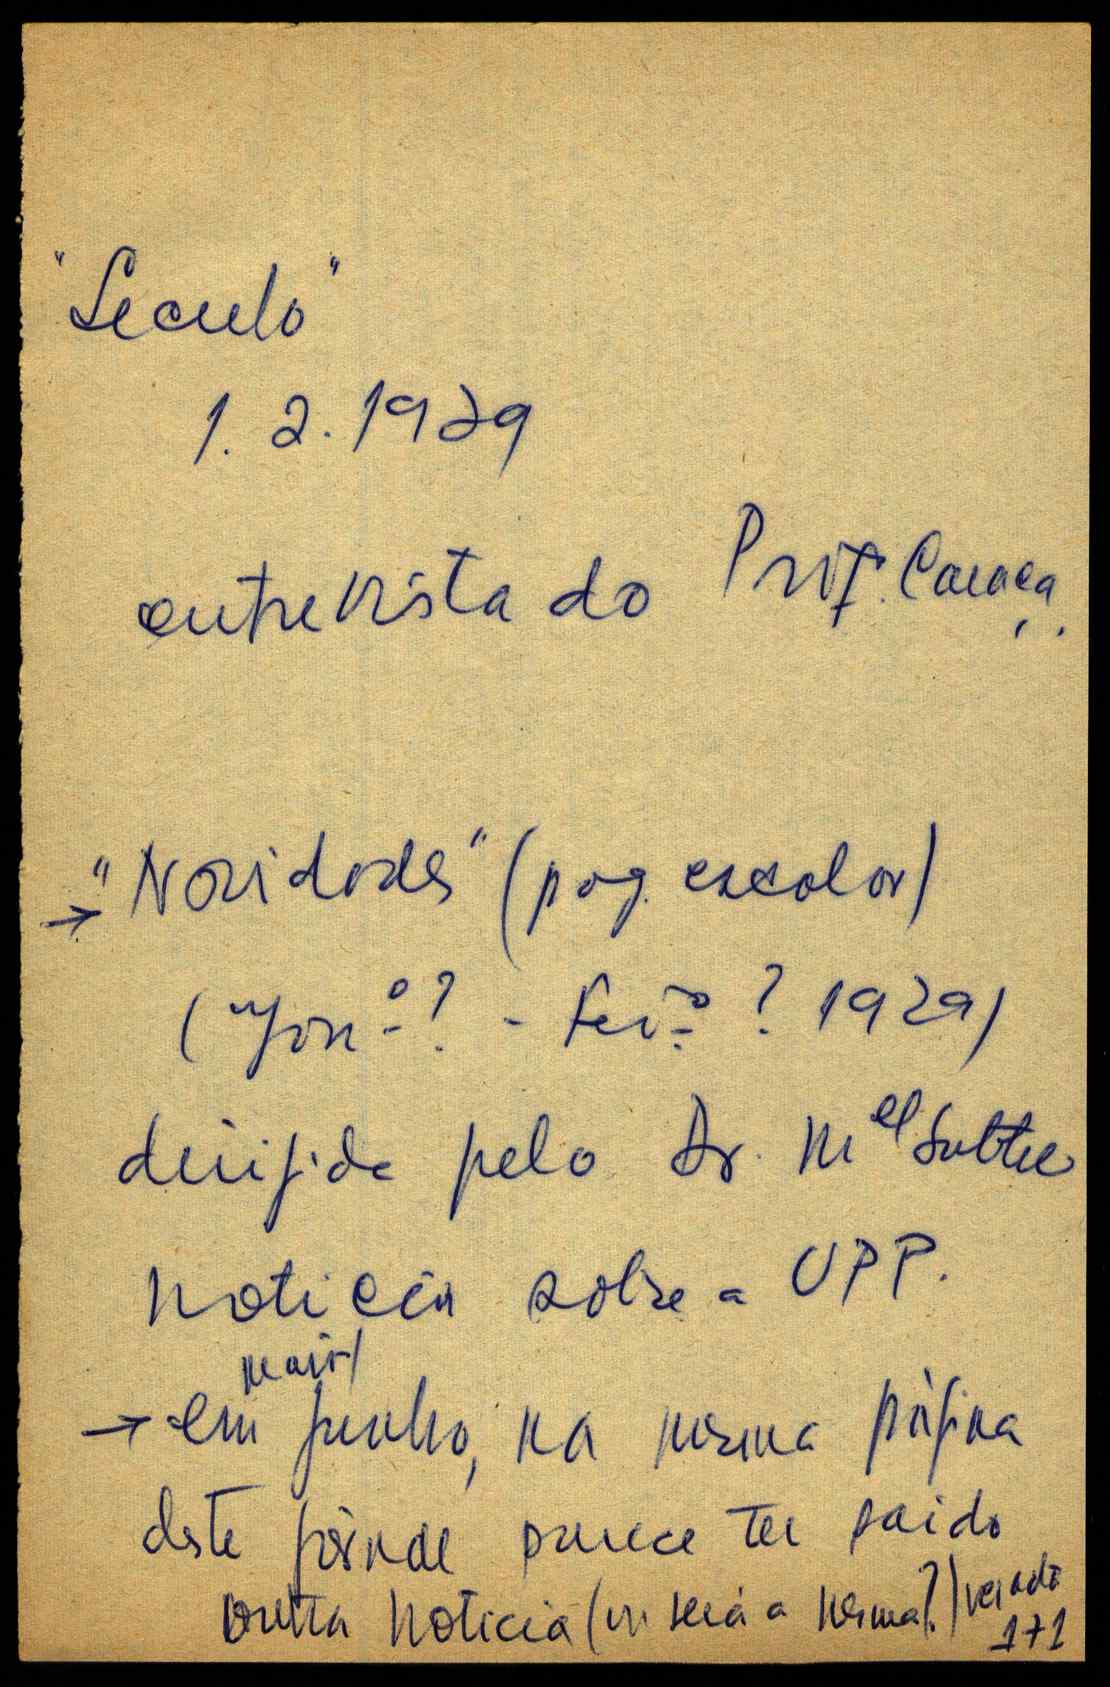 "Seculo"
1.2.1929
entrevista do Prof. Caraça.
→ "Novidades" (pag. escolar)
(Janº? - Fevº? 1929)
dirigida pelo Dr. Mel
noticia sobre a UPP.
maio/
→ em junho, na mesma página
deste jornal parece ter saido
outra noticia (ou será a mesma?)
1+1